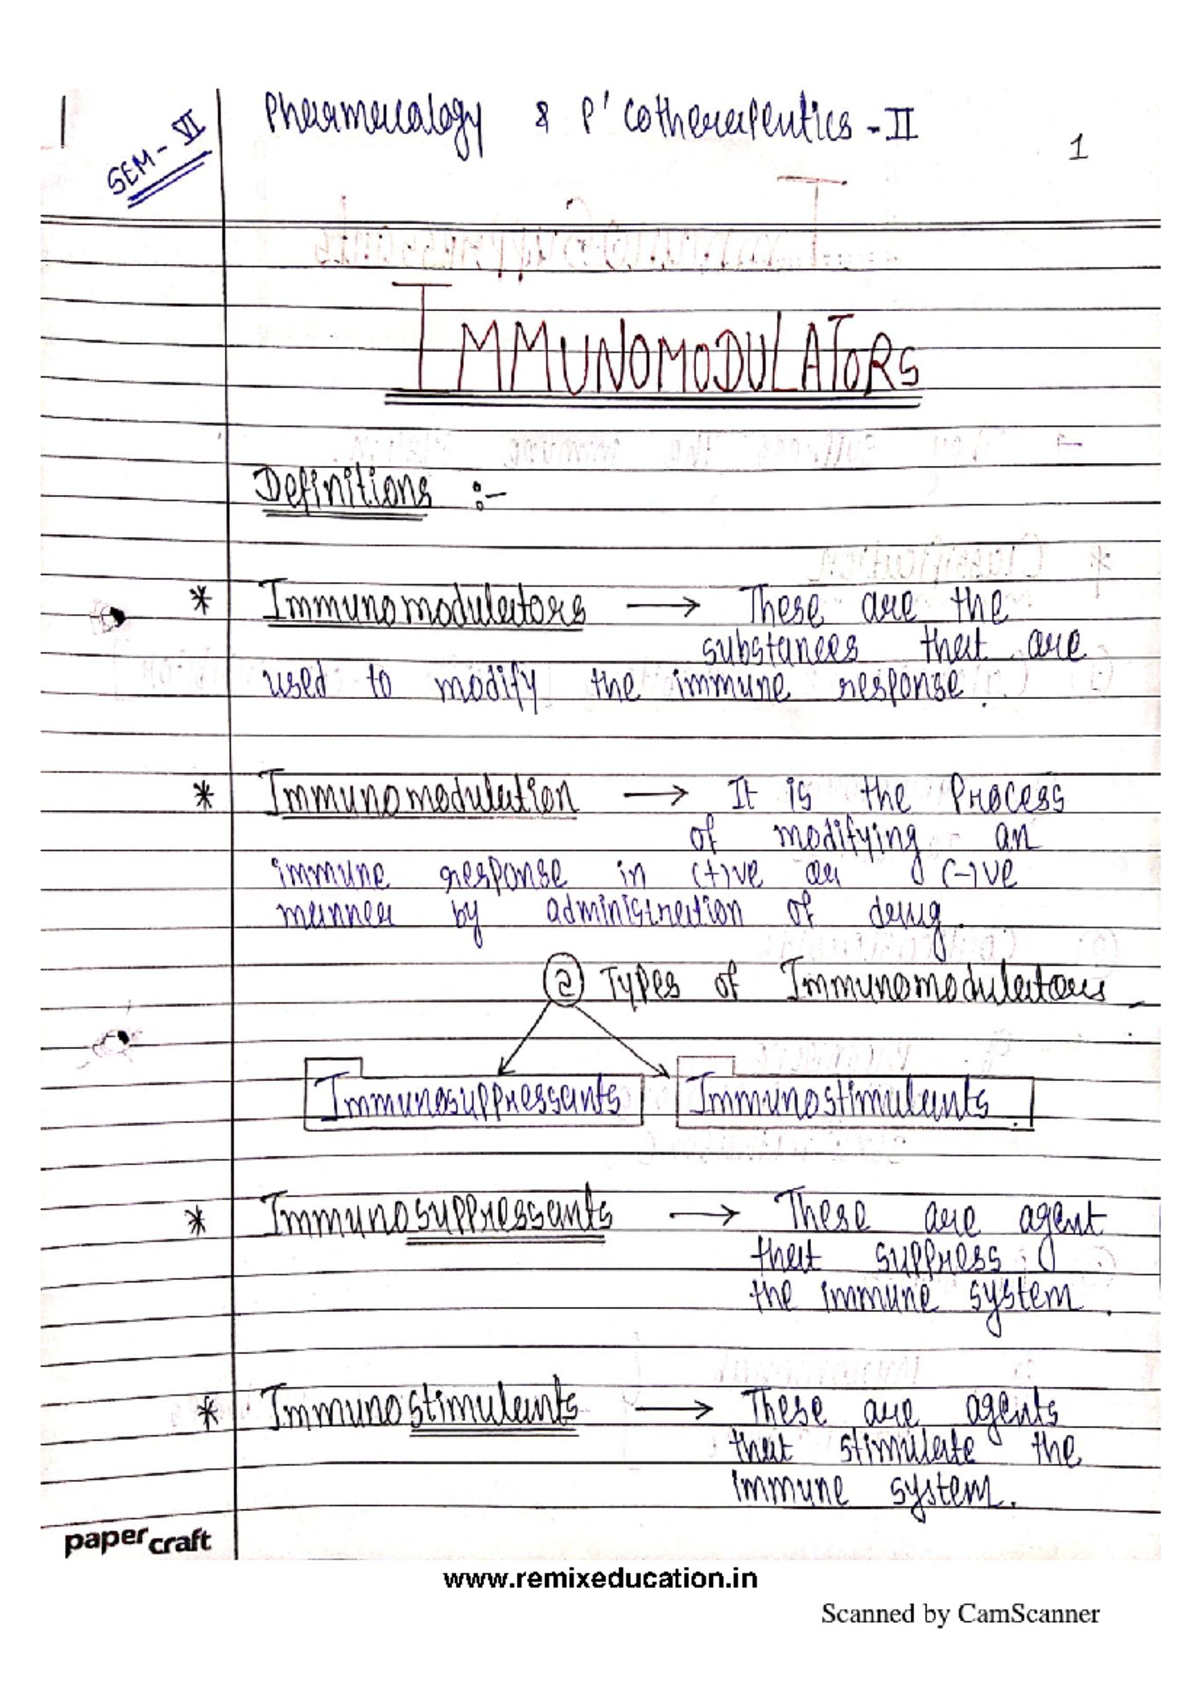 SEM - VI
Pharmacology & P'cotherapeutics - II
1
IMMUNOMODULATORS
Definitions :-
* Immunomodulators → These are the
substances that are
used to modify the immune response.
* Immunomodulation → It is the Process
of modifying an
immune response in (+)ve or (-)ve
manner by administration of drug.
② Types of Immunomodulators
Immunosuppressants Immunostimulants.
* Immunosuppressants → These are agent
that suppress
the immune system.
* Immunostimulants → These are agents
that stimulate the
immune system.
papercraft
www.remixeducation.in
Scanned by CamScanner